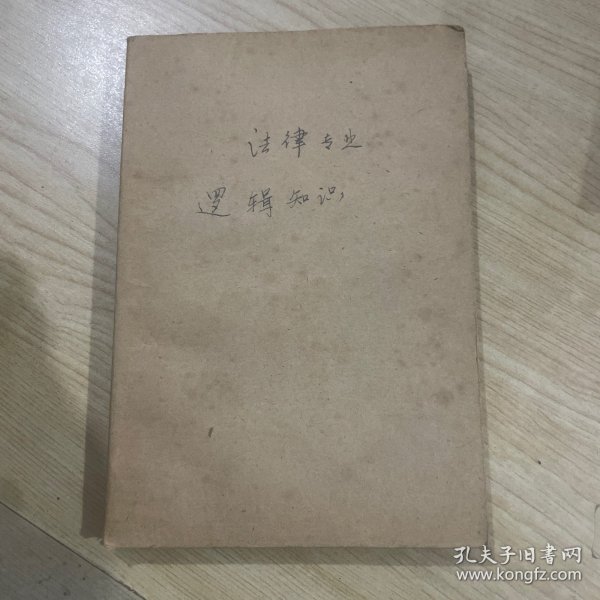 法律专业
逻辑知识
孔夫子旧书网
www.kongfz.com